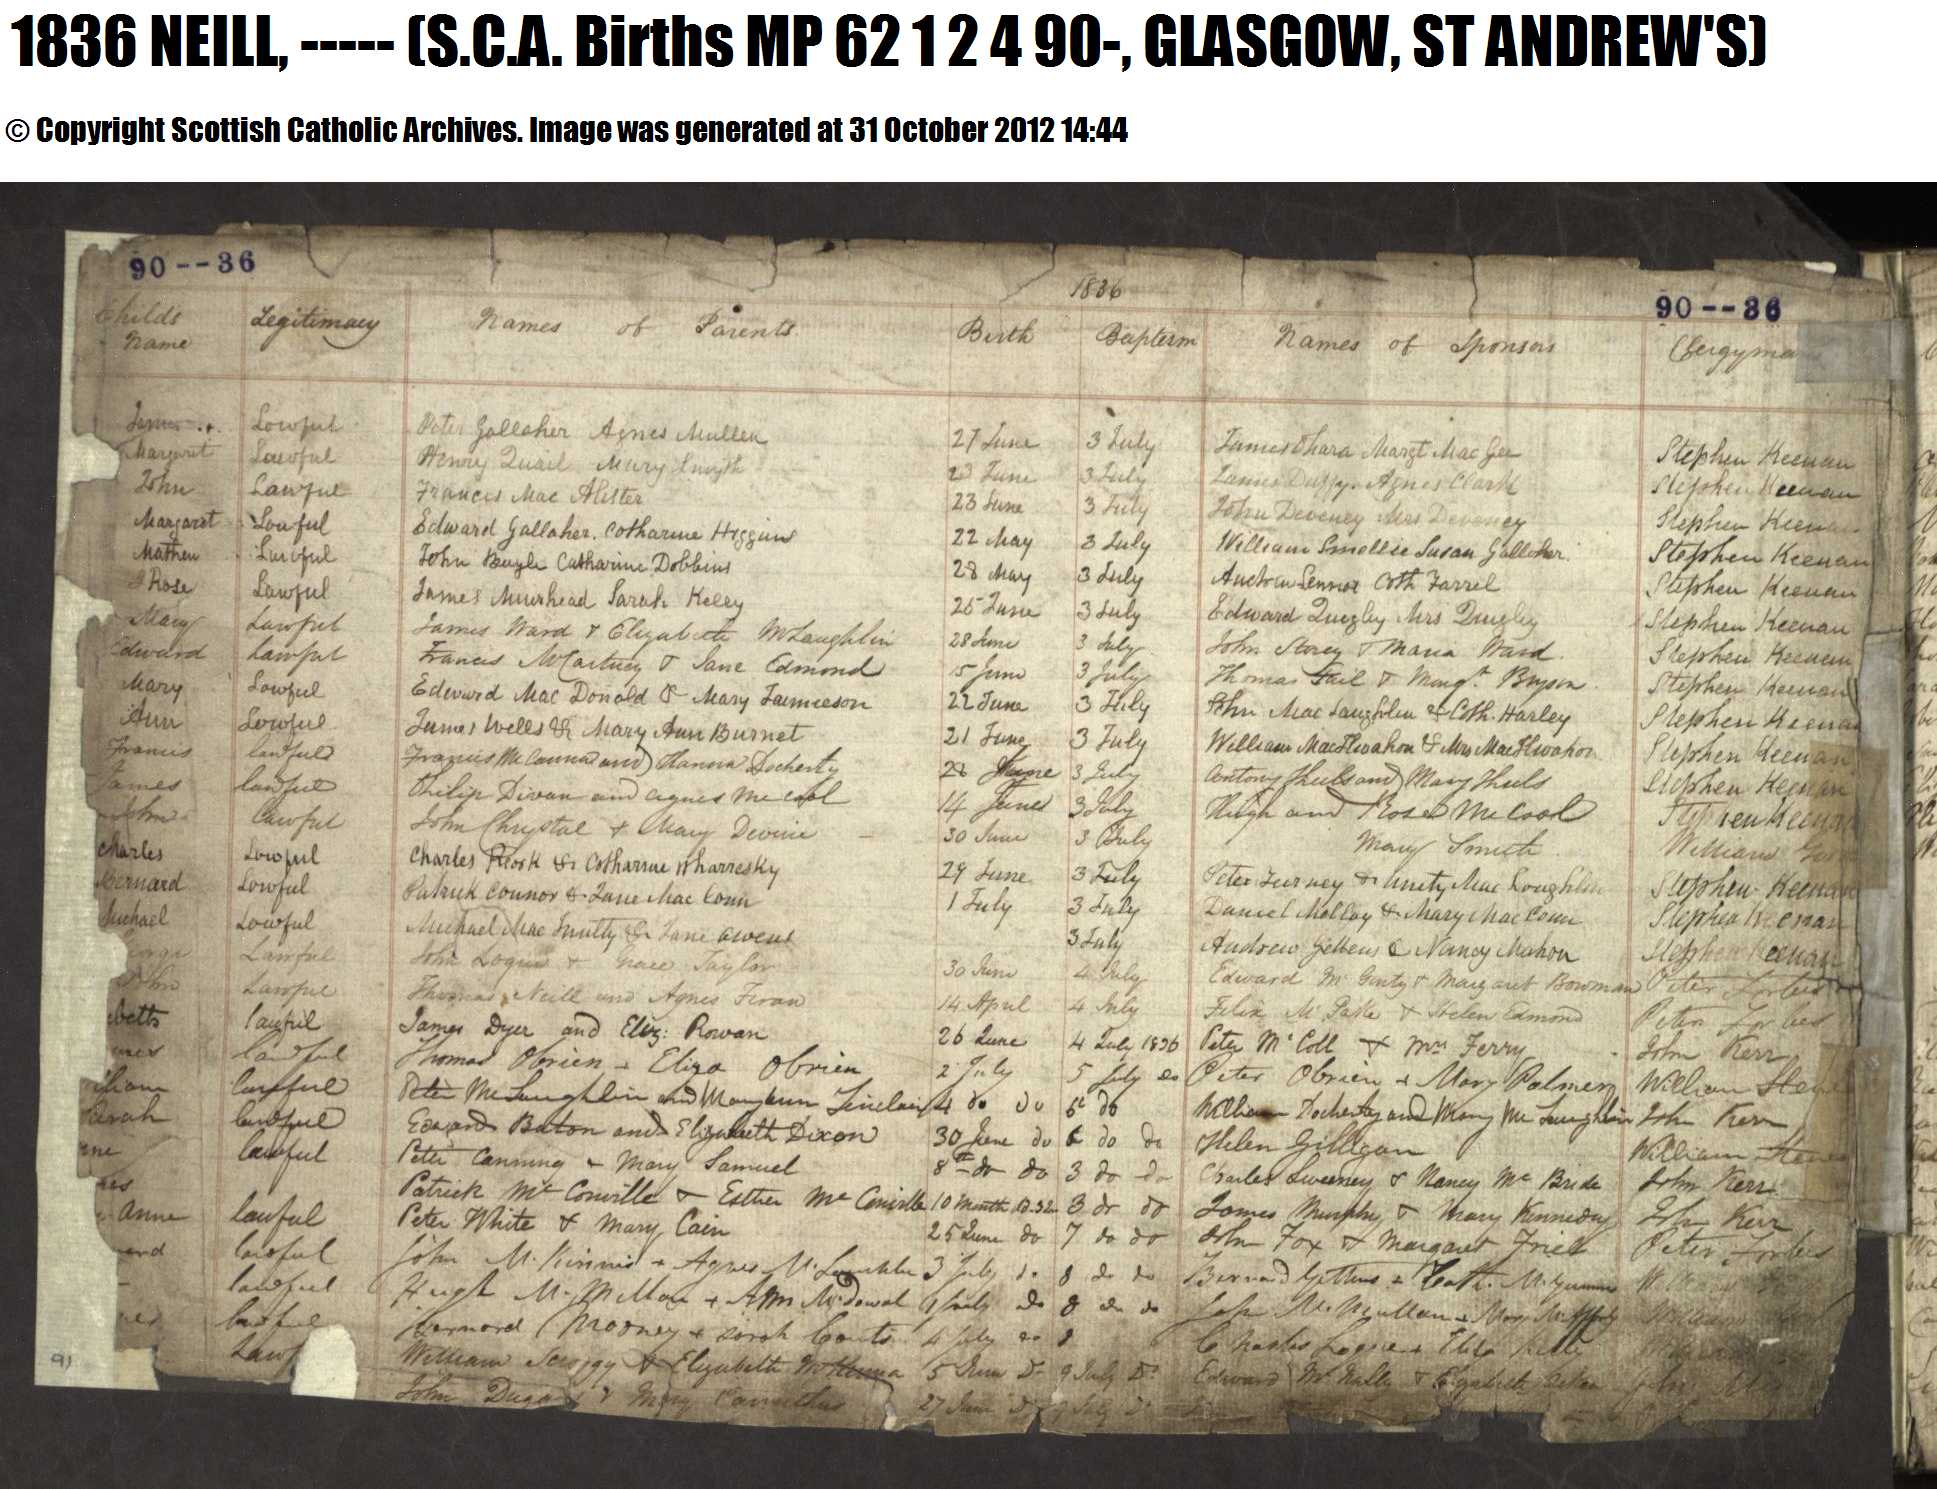 1836 NEILL, ----- (S.C.A. Births MP 62 1 2 4 90-, GLASGOW, ST ANDREW'S)
© Copyright Scottish Catholic Archives. Image was generated at 31 October 2012 14:44
90--36 1836 90--36
Childs Name Legitimacy Names of Parents Birth Baptism Names of Sponsors Clergyman
James Lawful Peter Gallaher Agnes Mullen 27 June 3 July James Ohara Margt Mac Gee Stephen Keenan
Margaret Lawful Henry Quail Mary Smyth 23 June 3 July James Duffy. Agnes Clark Stephen Keenan
John Lawful Francis Mac Alister 23 June 3 July John Deveney Mrs Deveney Stephen Keenan
Margaret Lawful Edward Gallaher. Catharine Higgins 22 May 3 July William Smellie Susan Gallaher. Stephen Keenan
Mathew Lawful John Catharine Dobbins 28 May 3 July Andrew Lennox Cath Farrel Stephen Keenan
Rose Lawful James Muirhead Sarah Kelly 25 June 3 July Edward Quigley Mrs Quigley Stephen Keenan
Mary Lawful James Ward & Elizabeth McLaughlin 28 June 3 July John Storey & Maria Ward. Stephen Keenan
Edward Lawful Francis McCartney & Jane Edmond 5 June 3 July Thomas & Margt. Bryson Stephen Keenan
Mary Lawful Edward Mac Donald & Mary Jamieson 22 June 3 July John Mac Laughlin & Cath. Harley Stephen Keenan
Ann Lawful James Wells & Mary Ann Burnet 21 June 3 July William & Mrs Stephen Keenan
Francis lawful Francis McCanna and Hanna Docherty 28 June 3 July Antony and Mary Stephen Keenan
James lawful Philip Divan and Agnes McCool 14 June 3 July Hugh and Rose McCool Stephen Keenan
John lawful John Chrystal & Mary Devine 30 June 3 July Mary Smith William
Charles Lawful Charles & Catharine 29 June 3 July Peter & Unity Mac Loughlin Stephen Keenan
Bernard Lawful Patrick Connor & Jane Mac Cann 1 July 3 July Daniel Molloy & Mary Mac Cann Stephen Keenan
Michael Lawful Michael Mac & Jane Owens 3 July Andrew & Nancy Mahon Stephen Keenan
Lawful John Logue & Grace Taylor 30 June 4 July Edward McGinty & Margaret Bowman Peter Forbes
John Lawful Thomas Neill and Agnes 14 April 4 July Felix & Helen Edmond Peter Forbes
lawful James Dyer and Eliz: Rowan 26 June 4 July 1836 Peter McColl & Mrs Ferry John Kerr
lawful Thomas Obrien + Eliza Obrien 2 July 5 July do Peter Obrien + Mary Palmer William
lawful Peter McLaughlin and Maryann Sinclair 4 do do 5 do William Docherty and Mary McLaughlin John Kerr
lawful Edward and Elizabeth Dixon 30 June do 6 do do Helen Gilligan William
lawful Peter Canning & Mary Samuel 8th do do 3 do do Charles Sweeney & Nancy McBride John Kerr
Patrick McConville & Esther McConville 3 do do James Murphy & Mary Kennedy John Kerr
Anne lawful Peter White & Mary Cain 25 June do 7 do do John Fox & Margaret Friel Peter Forbes
lawful John McKinnis + Agnes 3 July do 8 do do Bernard + Cath.
lawful Hugh McMillan + Ann McDowal July do 8 do do John McMullan +
lawful Bernard Mooney + Sarah 4 July do 8 Charles + Eliza
Lawf William Scroggy & Elizabeth 5 June Do 9 July Do Edward McNally & Elizabeth John
John & Mary Carruthers 27 June Do 9 July Do
91